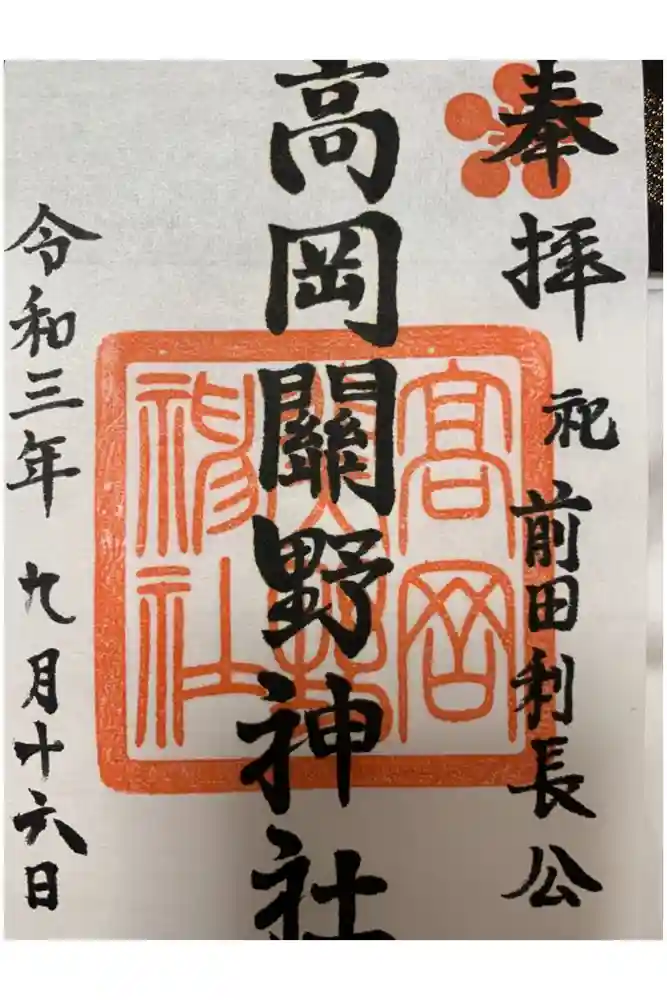 奉拝 祀前田利長公
高岡關野神社
令和三年九月十六日
高岡
關野
神社